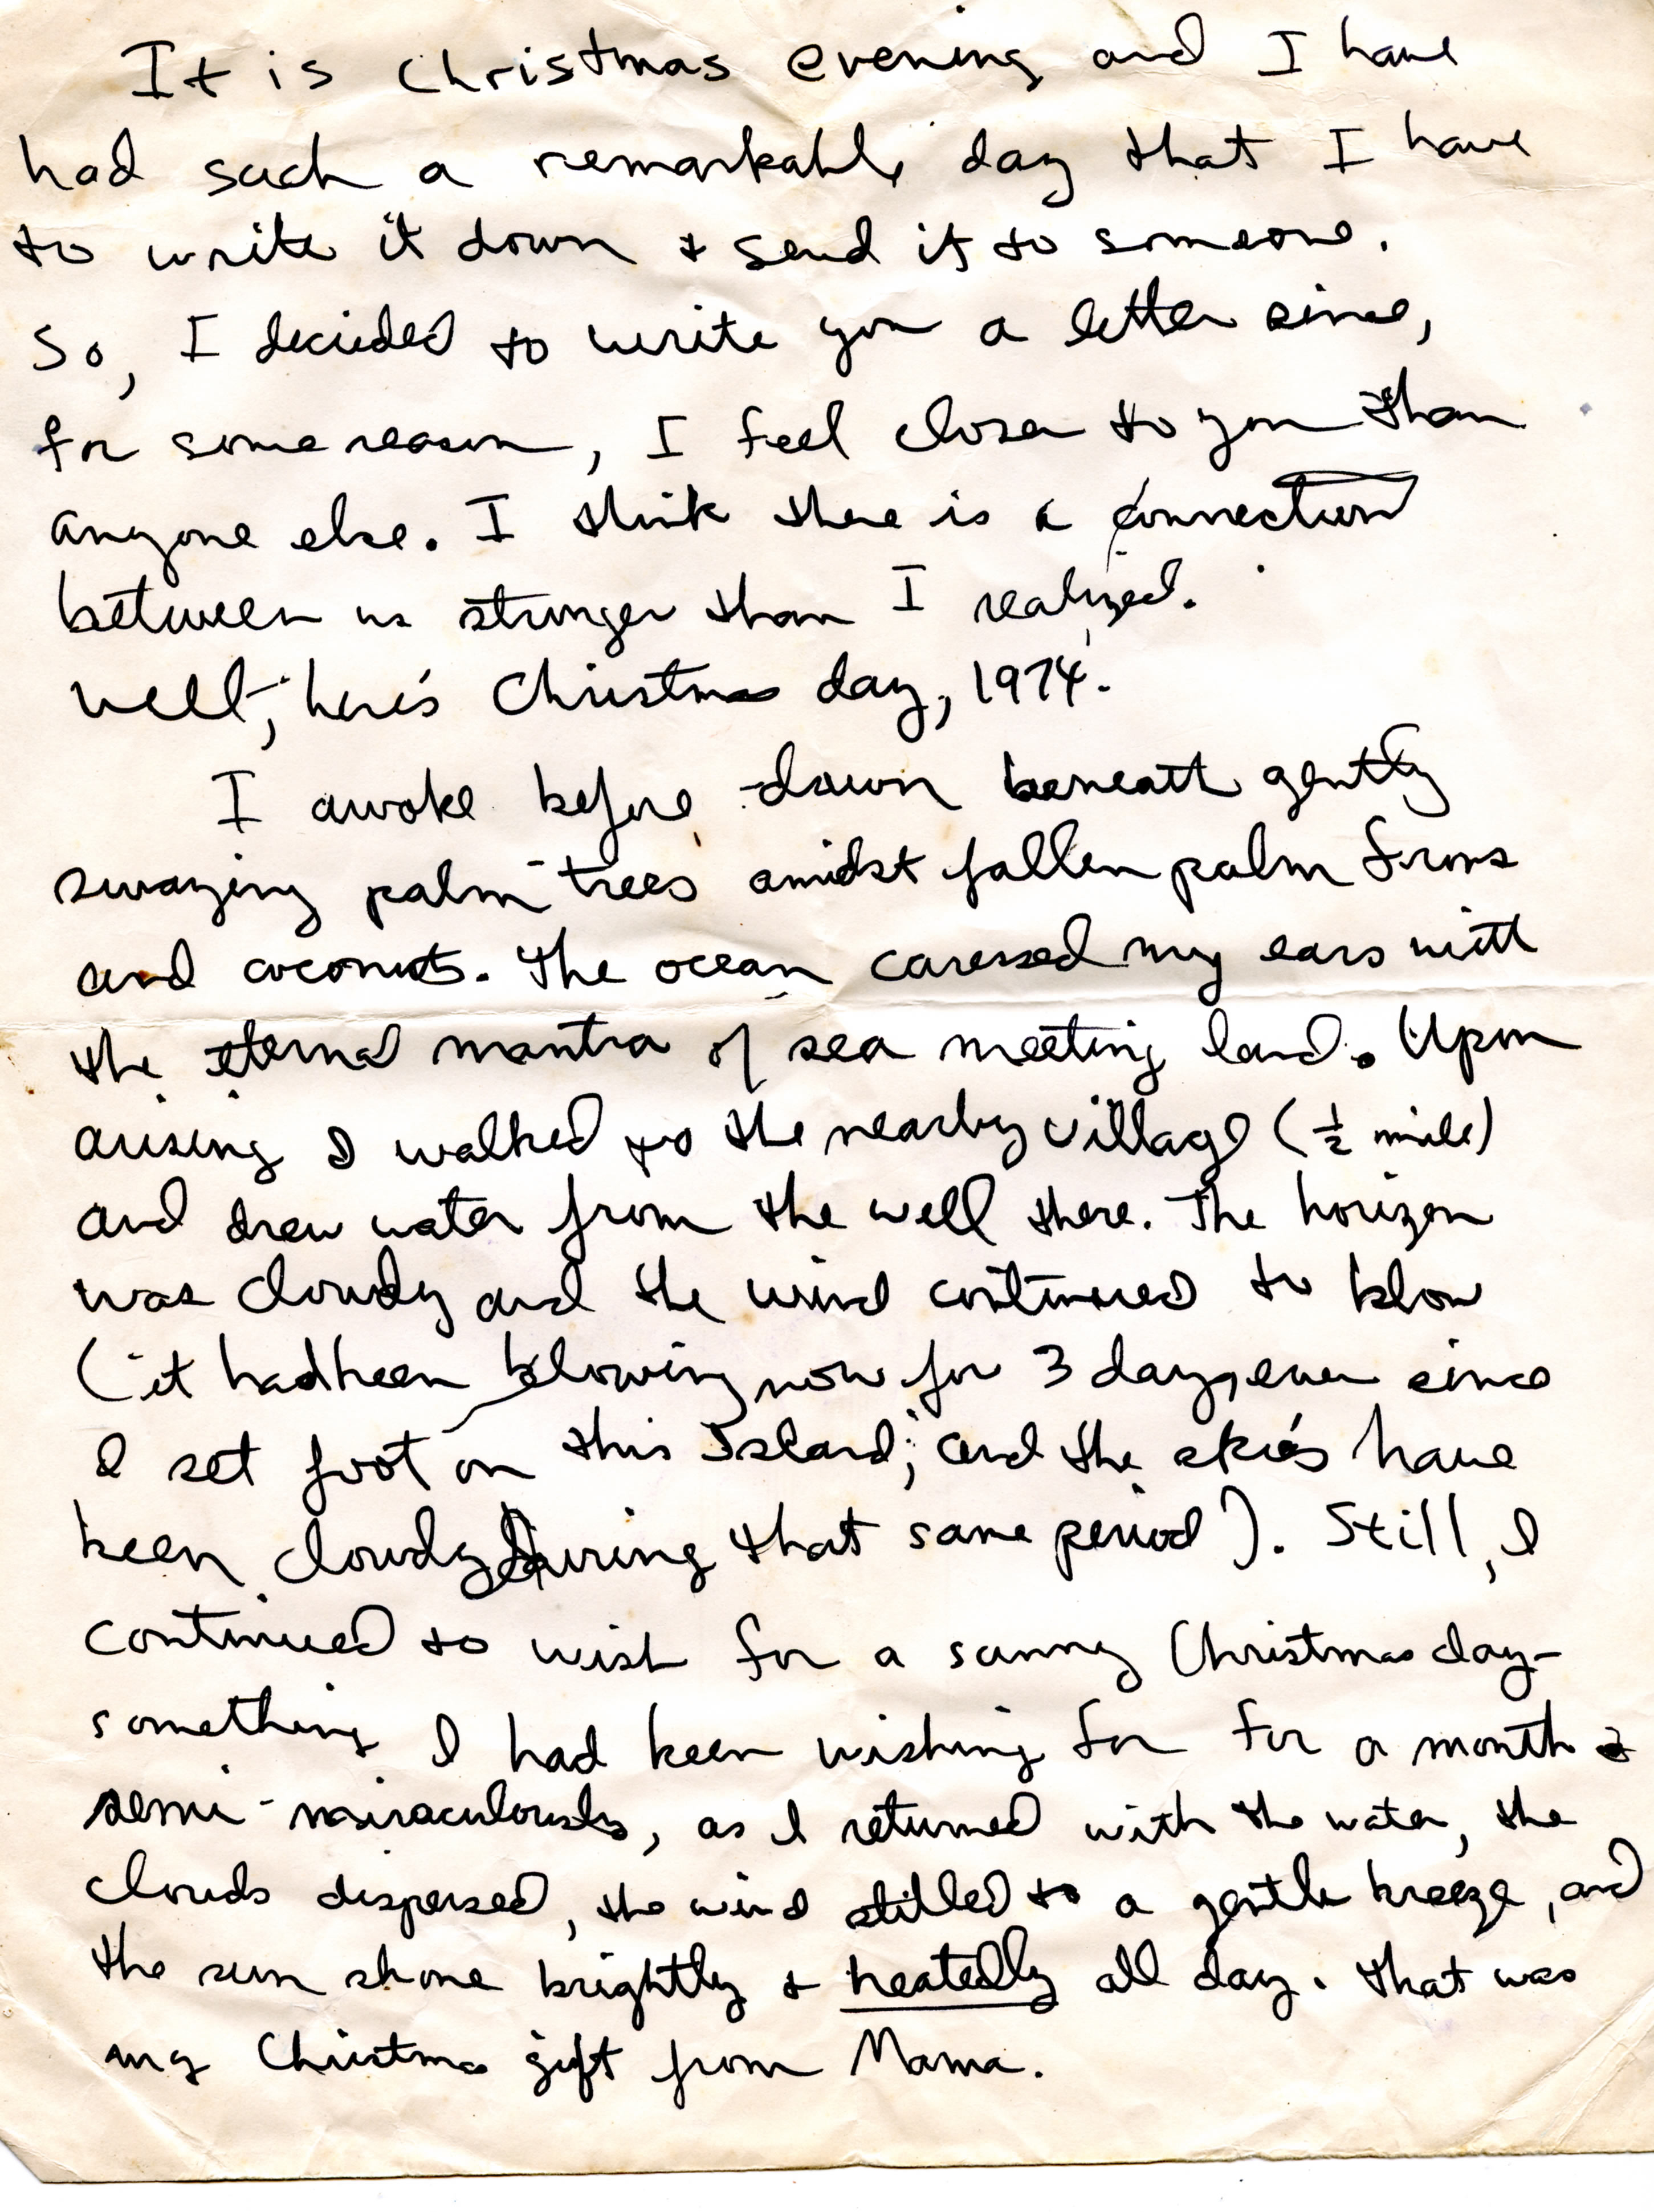 It is Christmas evening and I have
had such a remarkable day that I have
to write it down & send it to someone.
So, I decided to write you a letter since,
for some reason, I feel closer to you than
anyone else. I think there is a connection
between us stronger than I realized.
Well, here's Christmas day, 1974.
I awoke before dawn beneath gently
swaying palm trees amidst fallen palm frons
and coconuts. The ocean caressed my ears with
the eternal mantra of sea meeting land. Upon
arising I walked to the nearby village (½ mile)
and drew water from the well there. The horizon
was cloudy and the wind continued to blow
(it had been blowing now for 3 days, ever since
I set foot on this Island; and the skies have
been cloudy during that same period). Still, I
continued to wish for a sunny Christmas day-
something I had been wishing for for a month &
semi-miraculously, as I returned with the water, the
clouds dispersed, the wind stilled to a gentle breeze, and
the sun shone brightly & heatedly all day. That was
my Christmas gift from Mama.